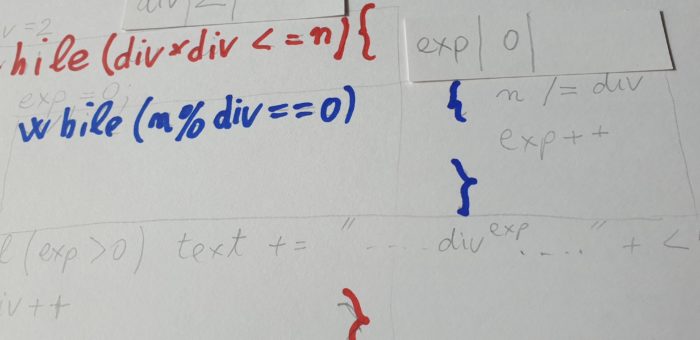 div | 2 |
v = 2
hile (div*div <= n) {
exp | 0 |
exp = 0;
while (n % div == 0) {
n /= div
exp++
}
(exp > 0) text += " .... div^exp ....." + <
iv ++
}